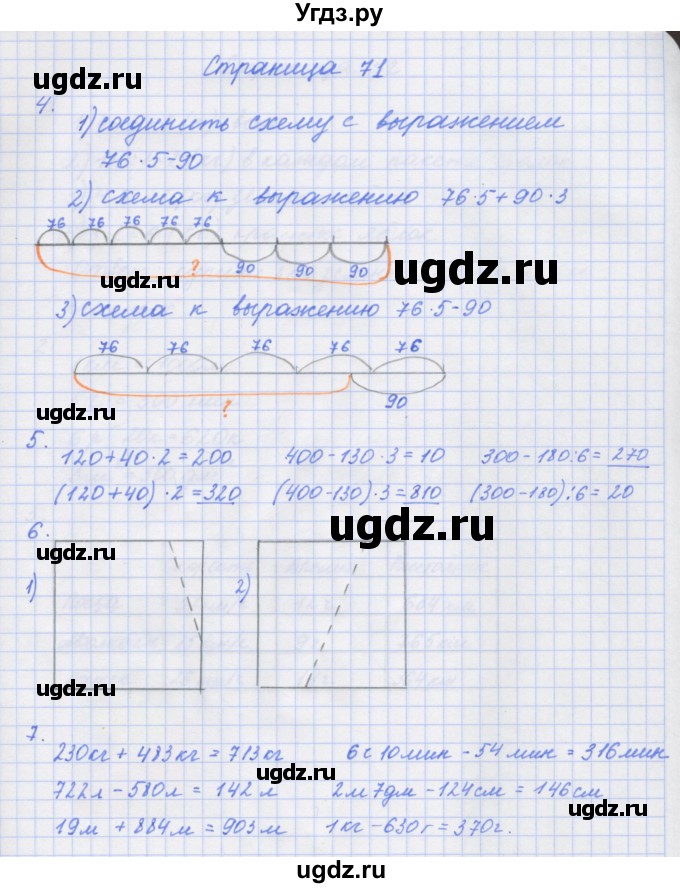 Угдз.ру
Страница 71
4.
1) соединить схему с выражением
76·5-90
2) схема к выражению 76·5+90·3
76 76 76 76 76
? 90 90 90
3) схема к выражению 76·5-90
76 76 76 76 76
? 90
5.
120+40·2=200 400-130·3=10 300-180:6=270
(120+40)·2=320 (400-130)·3=810 (300-180):6=20
6.
1) 2)
7.
230кг + 483кг = 713кг 6с 10мин - 54мин = 316мин
722л - 580л = 142л 2м 7дм - 124см = 146см
19м + 884м = 903м 1кг - 630г = 370г.
ugdz.ru
ugdz.ru
ugdz.ru
ugdz.ru
ugdz.ru
ugdz.ru
ugdz.ru
ugdz.ru
ugdz.ru
ugdz.ru
ugdz.ru
ugdz.ru